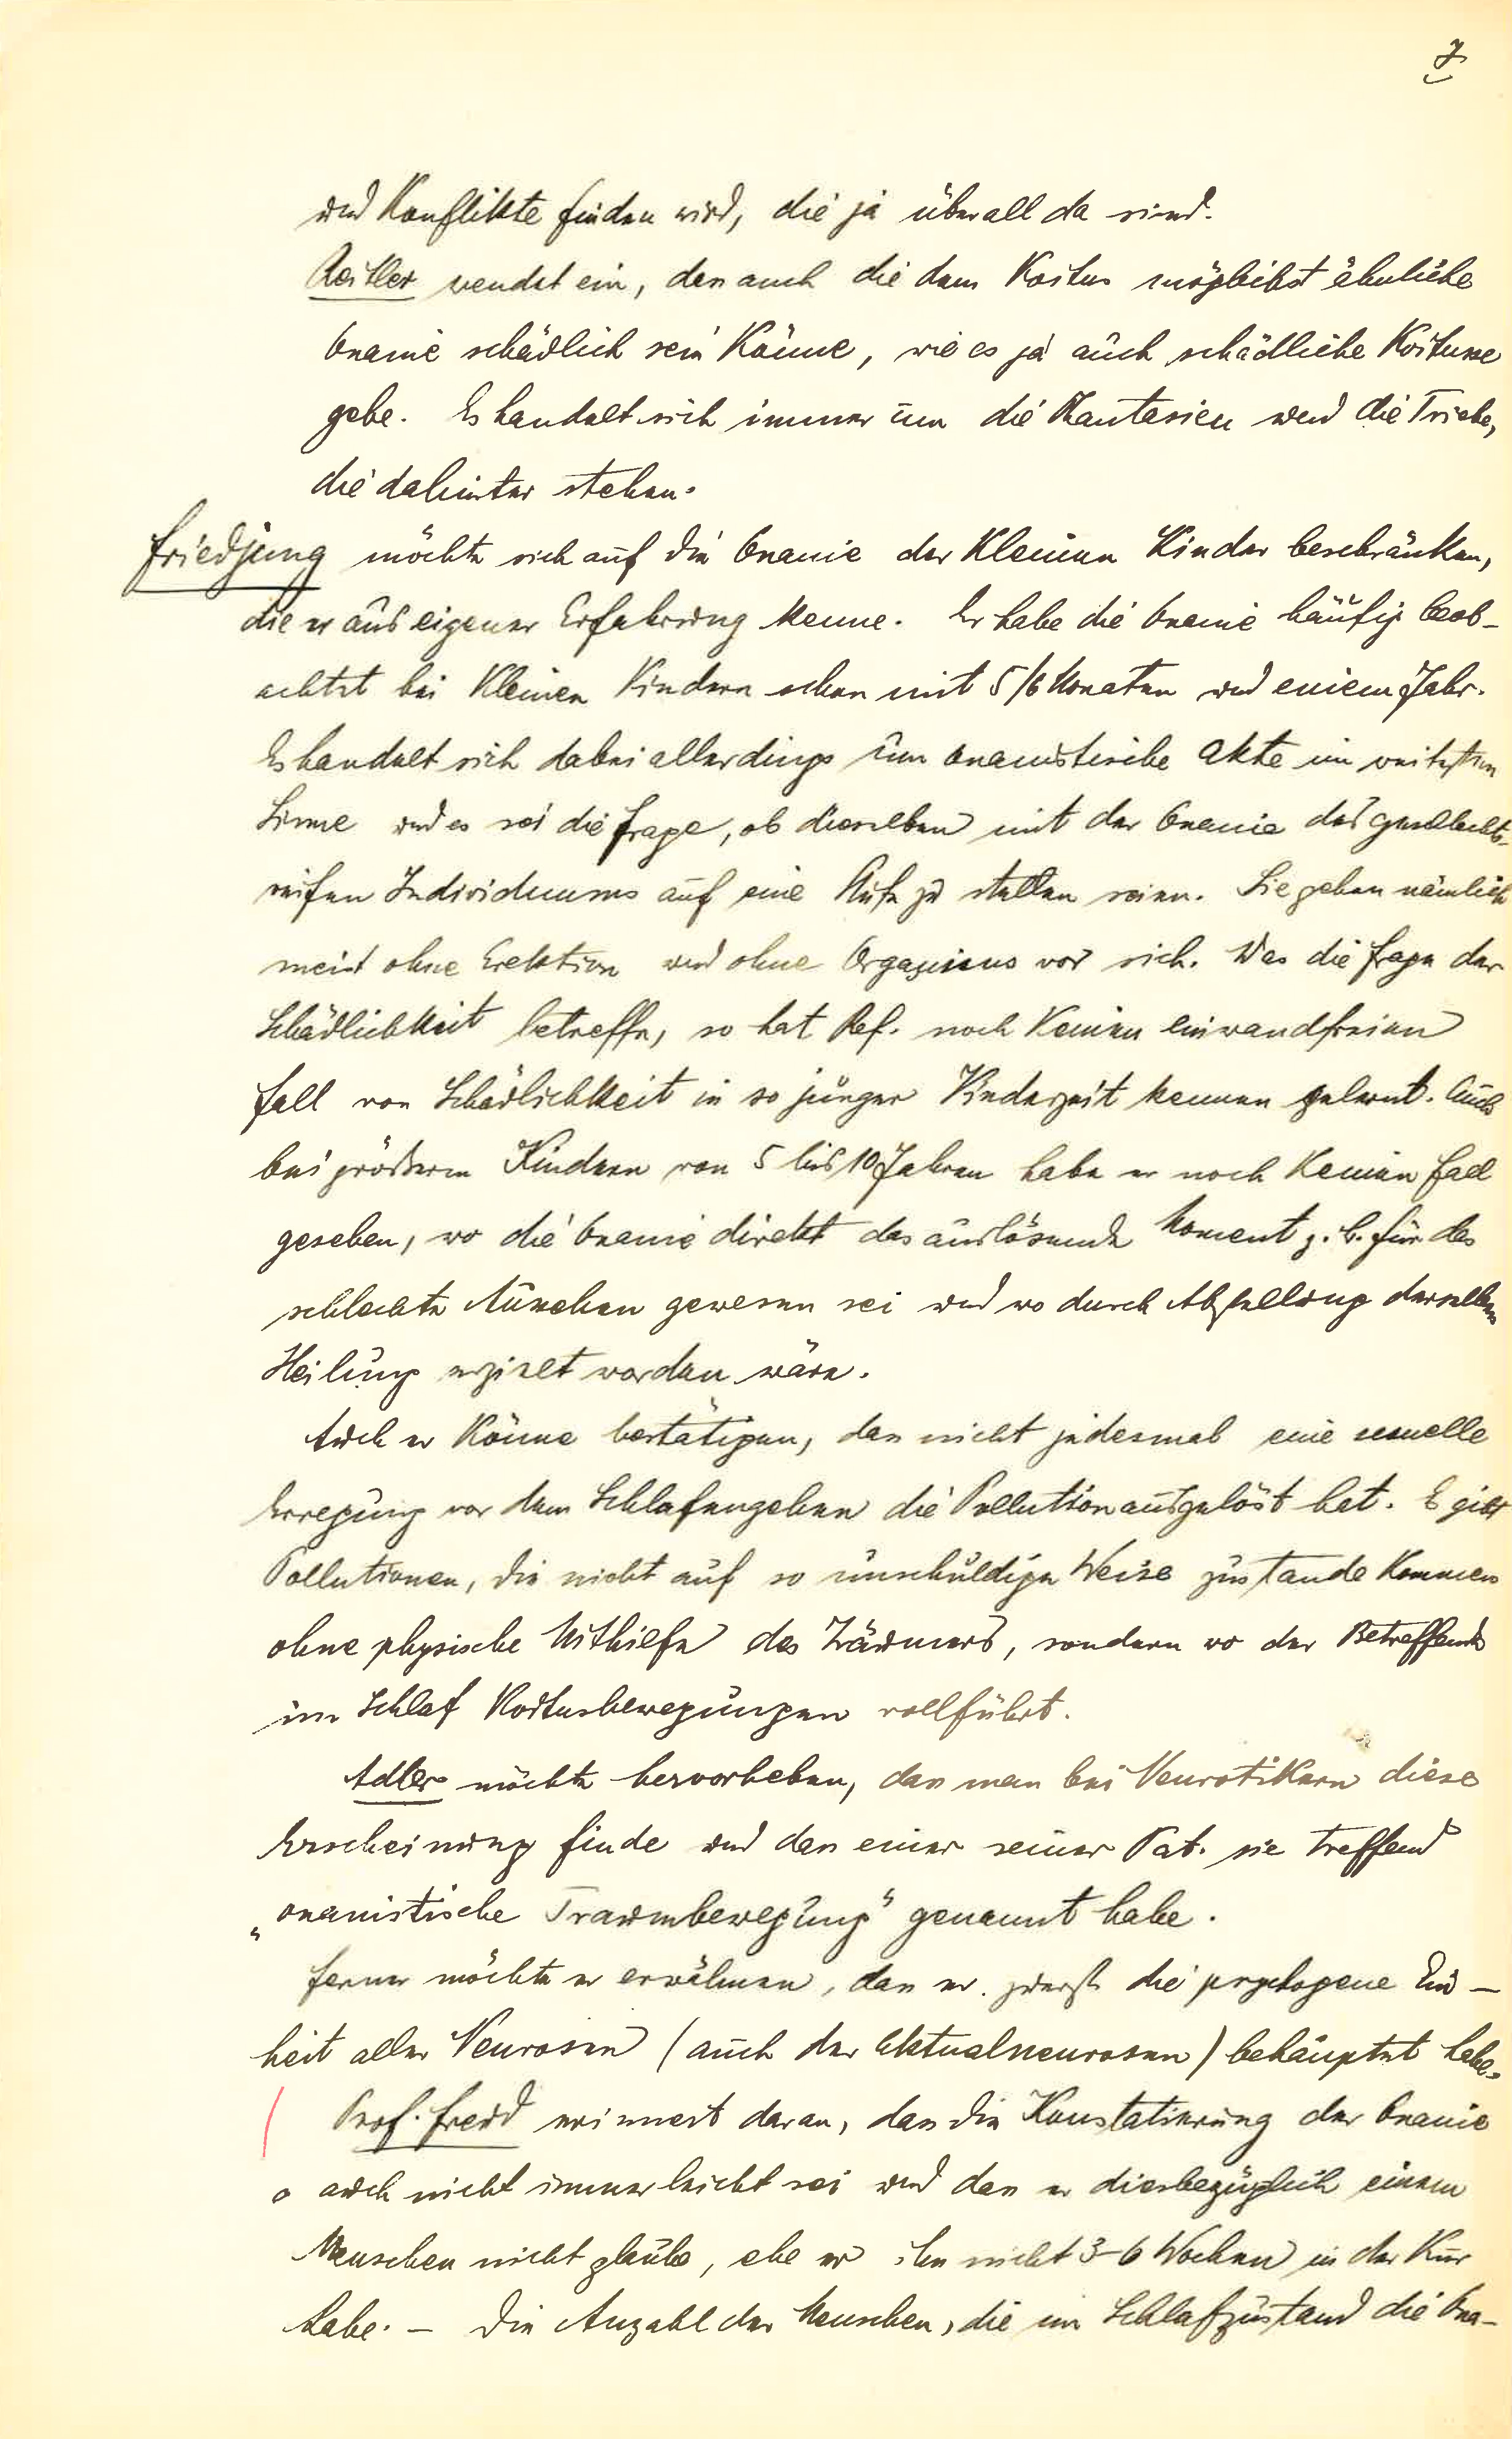 7
und Konflikte finden wird, die ja überall da sind.
Reitler wendet ein, dass auch die dem Koitus möglichst ähnliche
Onanie schädlich sein könne, wie es ja auch schädliche Koitusse
gebe. Es handelt sich immer um die Phantasien und die Triebe,
die dahinter stehen.
Friedjung möchte sich auf die Onanie der kleinen Kinder beschränken,
die er aus eigener Erfahrung kenne. Er habe die Onanie häufig beob-
achtet bei kleinen Kindern schon mit 5/6 Monaten und einem Jahr.
Es handelt sich dabei allerdings um onanistische Akte im weitesten
Sinne und es sei die Frage, ob dieselben mit der Onanie des geschlechts-
reifen Individuums auf eine Stufe zu stellen seien. Sie gehen nämlich
meist ohne Erektion und ohne Orgasmus vor sich. Was die Frage der
Schädlichkeit betreffe, so hat Ref. noch keinen einwandfreien
Fall von Schädlichkeit in so junger Kinderzeit kennen gelernt. Auch
bei größeren Kindern von 5 bis 10 Jahren habe er noch keinen Fall
gesehen, wo die Onanie direkt das auslösende Moment z. B. für das
schlechte Aussehen gewesen sei und wo durch Abstellung derselben
Heilung erzielt worden wäre.
Auch er könne bestätigen, dass nicht jedesmal eine sexuelle
Erregung vor dem Schlafengehen die Pollution ausgelöst hat. Es gibt
Pollutionen, die nicht auf so unschuldige Weise zustande kommen
ohne physische Mithilfe des Träumers, sondern wo der Betreffende
im Schlaf Koitusbewegungen vollführt.
Adler möchte hervorheben, dass man bei Neurotikern diese
Erscheinung finde und dass einer seiner Pat. sie treffend
„onanistische Traumbewegung" genannt habe.
Ferner möchte er erwähnen, dass er zuerst die psychogene Ein-
heit aller Neurosen (auch der Aktualneurosen) behauptet habe.
Prof. Freud erinnert daran, dass die Konstatierung der Onanie
auch nicht immer leicht sei und dass er diesbezüglich einem
Menschen nicht glaube, ehe er ihn nicht 3-6 Wochen in der Kur
habe. — Die Anzahl der Menschen, die im Schlafzustand die Ona-